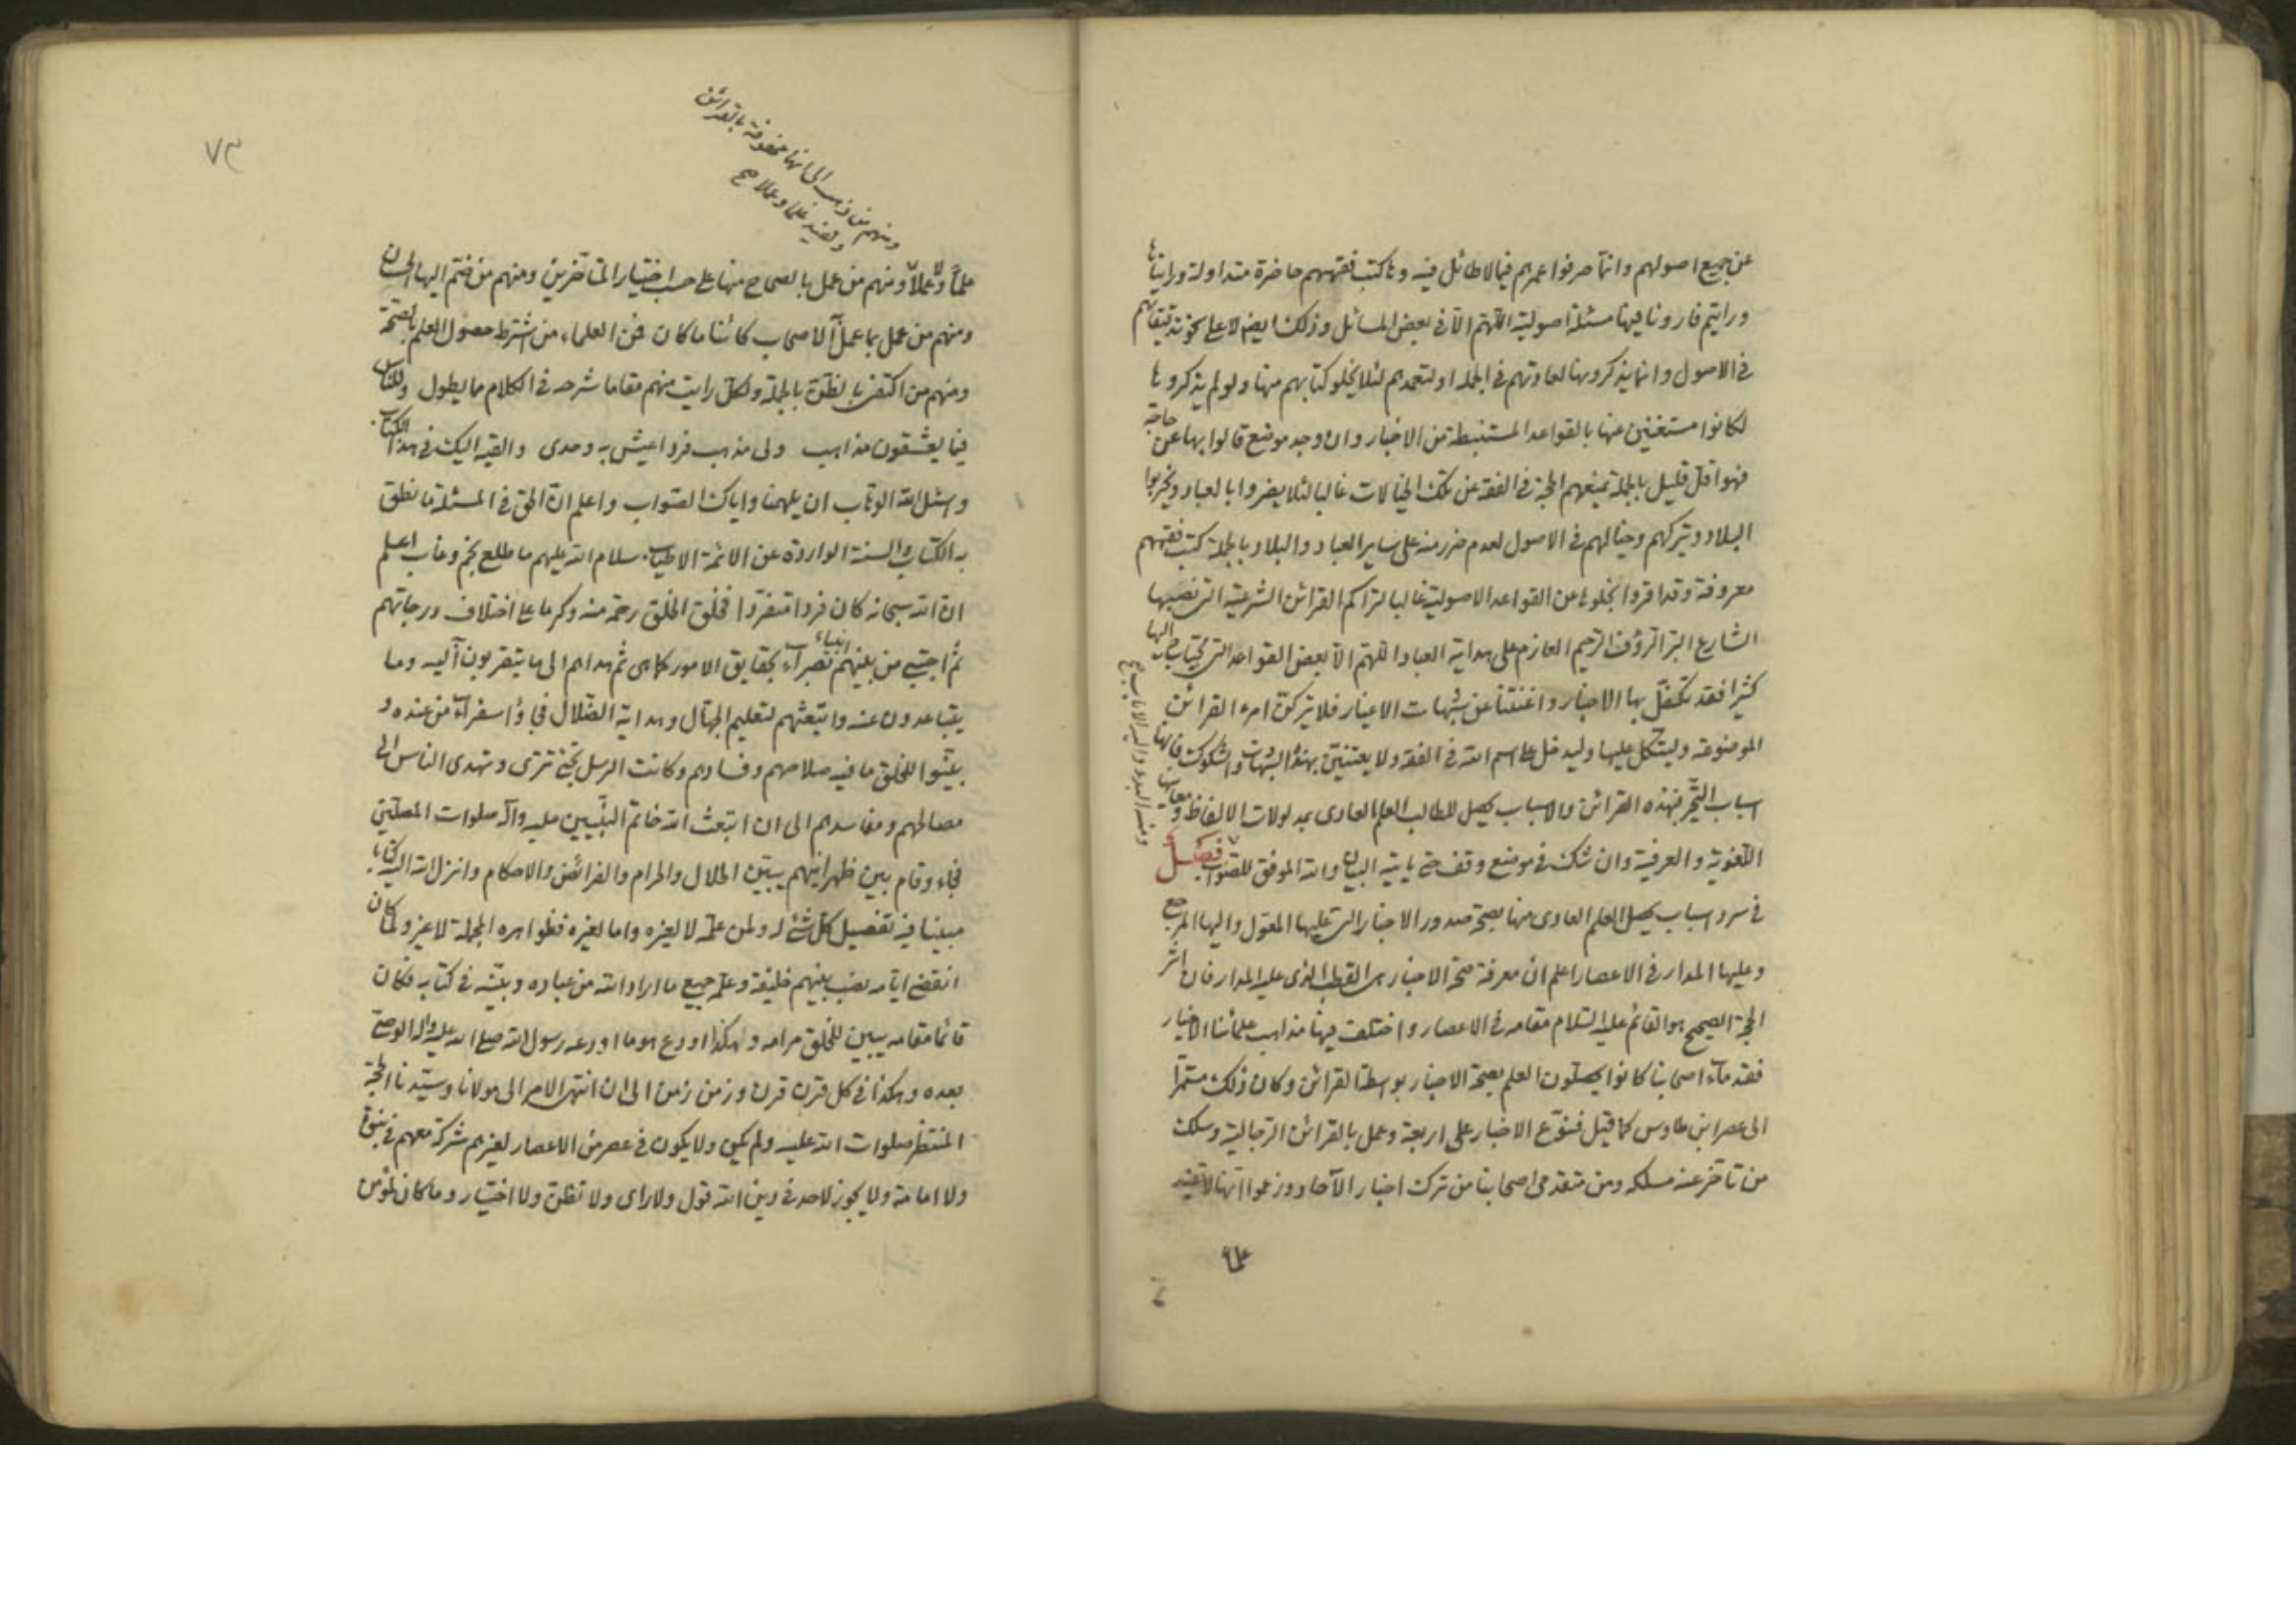 عن جميع اصولهم وانما صرفوا عمرهم فيما لا طائل فيه وها كتب فقههم حاضرة متداولة ورايناها
ورايتم فارونا فيها مسئلة اصولية اللهم الا في بعض المسائل وذلك ايضا لا على نحو تدقيقاتهم
في الاصول وانما يذكرونها لعادتهم في الجملة او لتعمدهم لئلا يخلو كتابهم منها ولو لم يذكروها
لكانوا مستغنين عنها بالقواعد المستنبطة من الاخبار وان وجد موضع قالوا بها عن حاجة
فهو اقل قليل بالجملة تمنعهم الحجة في الفقه عن تلك الخيالات غالبا لئلا يضروا بالعباد ويخربوا
البلاد ويتركهم وخيالهم في الاصول لعدم ضرر منه على ساير العباد والبلاد بالجملة كتب فقههم
معروفة وقد اقروا بخلوها عن القواعد الاصولية غالبا لتراكم القرائن الشرعية التي نصبها
الشارع البر الرؤف الرحيم العازم على هداية العباد اللهم الا بعض القواعد التي يحتاج اليها
كثيرا فقد تكفل بها الاخبار واغنتنا عن شبهات الاغيار فلا يتركن امرء القرائن
الموضوعة وليتكل عليها وليدخل على اسم الله في الفقه ولا يعتنين بهذه الشبهات والشكوك فانها
اسباب التحير فهذه القرائن والاسباب يحصل للطالب العلم العادي بمدلولات الالفاظ ومعانيها
اللغوية والعرفية وان شك في موضع وقف حتى ياتيه البيان والله الموفق للصواب فصل
في سرد اسباب يحصل العلم العادي منها بصحة صدور الاخبار التي عليها المعول واليها المرجع
وعليها المدار في الاعصار اعلم ان معرفة صحة الاخبار هي القطب الذي عليه المدار فان اثر
الحجة الصحيح هو القائم عليه السلام مقامه في الاعصار واختلف فيها مذاهب علمائنا الاخيار
فقدماء اصحابنا كانوا يحصلون العلم بصحة الاخبار بواسطة القرائن وكان ذلك مستمرا
الى عصر ابن طاوس كما قيل فنوع الاخبار على اربعة وعمل بالقرائن الرجالية وسلك
من تاخر عنه مسلكه ومن متقدمي اصحابنا من ترك اخبار الآحاد وزعموا انها لا تفيد
علما
ومنه البدء واليه الاياب
٧٣
ومنهم من ذهب الى انها محفوفة بالقرائن
وتفيد علما وعملا صح
علماً ولا عملاً ومنهم من عمل بالصحاح منها على حسب اختيار المتاخرين ومنهم من ضم اليها الحسان
ومنهم من عمل بما عمل الاصحاب كائنا ما كان فمن العلماء من اشترط حصول العلم بالصحة
ومنهم من اكتفى بالظن بالجملة ولكل رايت منهم مقاما شرحه في الكلام ما يطول وللناس
فيما يعشقون مذاهب ولى مذهب فرد اعيش به وحدى والقيه اليك في هذا الكتاب
واسئل الله الوهاب ان يلهمنا واياك الصواب واعلم ان الحق في المسئلة ما نطق
به الكتاب والسنة الواردة عن الائمة الاطياب سلام الله عليهم ما طلع نجم وغاب اعلم
ان الله سبحانه كان فردا متفردا فخلق الخلق رحمة منه وكرما على اختلاف درجاتهم
ثم اجتبى من بينهم انبياء بصراء بحقايق الامور كما هي ثم هداهم الى ما يتقربون اليه وما
يتباعدون عنه وابتعثهم لتعليم الجهال وهداية الضلال فجاؤا سفراء من عنده و
بينوا للخلق ما فيه صلاحهم وفسادهم وكانت الرسل تجئ تترى وتهدى الناس الى
مصالحهم ومفاسدهم الى ان ابتعث الله خاتم النبيين عليه وآله صلوات المصلين
فجاء وقام بين ظهرانيهم يبين الحلال والحرام والفرائض والاحكام وانزل الله اليه كتابا
مبينا فيه تفصيل كل شئ له ولمن علمه لا لغيره واما لغيره فظواهره الجملة لا غير ولما كان
انقضى ايامه نصب بينهم خليفة وعلمه جميع ما اراد الله من عباده وبينه في كتابه فكان
قائما مقامه يبين للخلق مرامه وهكذا اودع هو ما اودعه رسول الله صلى الله عليه واله الوصي
بعده وهكذا في كل قرن قرن وزمن زمن الى ان انتهى الامر الى مولانا وسيدنا الحجة
المنتظر صلوات الله عليه ولم يكن ولا يكون في عصر من الاعصار لغيرهم شركة معهم في نبوة
ولا امامة ولا يجوز لاحد في دين الله قول ولا راى ولا تظن ولا اختيار وما كان لمؤمن